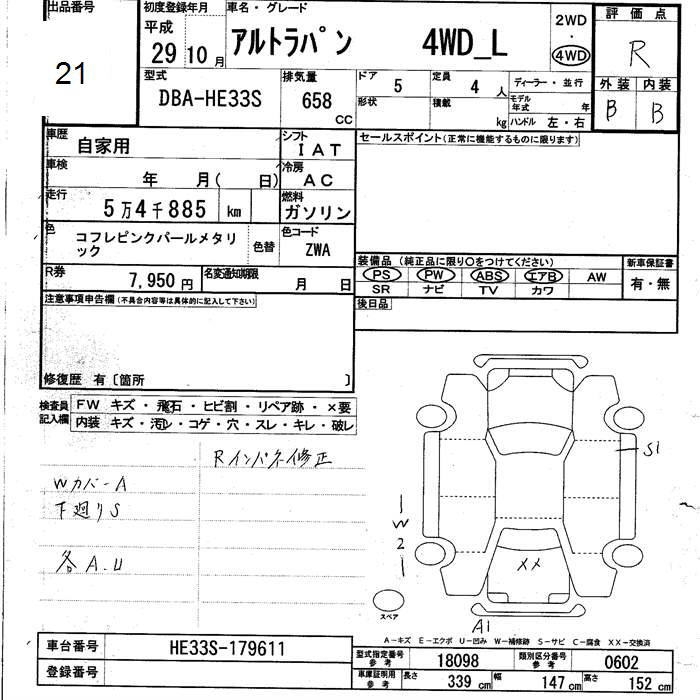 出品番号
21
初度登録年月
平成
29 10月
車名・グレード
アルトラパン 4WD_L
2WD
・
4WD
評価点
R
外装 内装
B B
型式
DBA-HE33S
排気量
658
CC
ドア 5
形状
定員 4 人
積載 kg
ディーラー・並行
モデル年式 年
ハンドル 左・右
車歴
自家用
シフト
IAT
車検
年 月( 日)
冷房
AC
走行
5万4千885 km
燃料
ガソリン
色
コフレピンクパールメタリ
ック
色替
色コード
ZWA
R券
7,950円
名変通知期限
月 日
セールスポイント(正常に機能するものに限ります)
装備品 (純正品に限り○をつけてください)
PS PW ABS エアB AW
SR ナビ TV カワ
新車保証書
有・無
後日品
注意事項申告欄(不具合内容等は具体的に記入して下さい)
修復歴 有〔箇所 〕
検査員
記入欄
FW キズ・飛石・ヒビ割・リペア跡・×要
内装 キズ・汚れ・コゲ・穴・スレ・キレ・破レ
Rインパネ修正
Wカバー A
下廻りS
各A.U
S1
W
2
XX
A1
スペア
A-キズ E-エクボ U-凹み W-補修跡 S-サビ C-腐食 XX-交換済
車台番号 HE33S-179611
登録番号
型式指定番号
参考
18098
類別区分番号
参考
0602
車庫証明用
参考
長さ 339 cm 幅 147 cm 高さ 152 cm